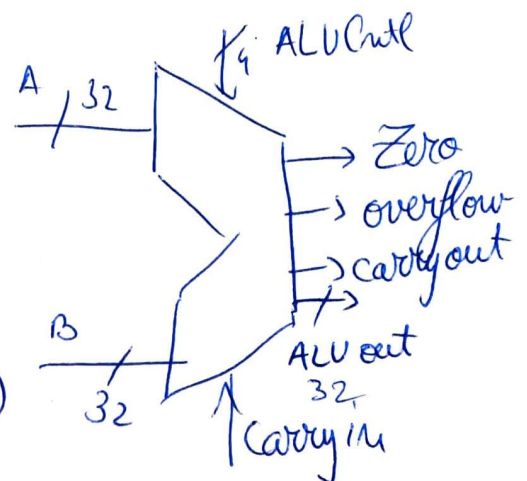 4 ALUCntl
A 32
Zero
overflow
carryout
B
32
ALU out
32
Carry in
)